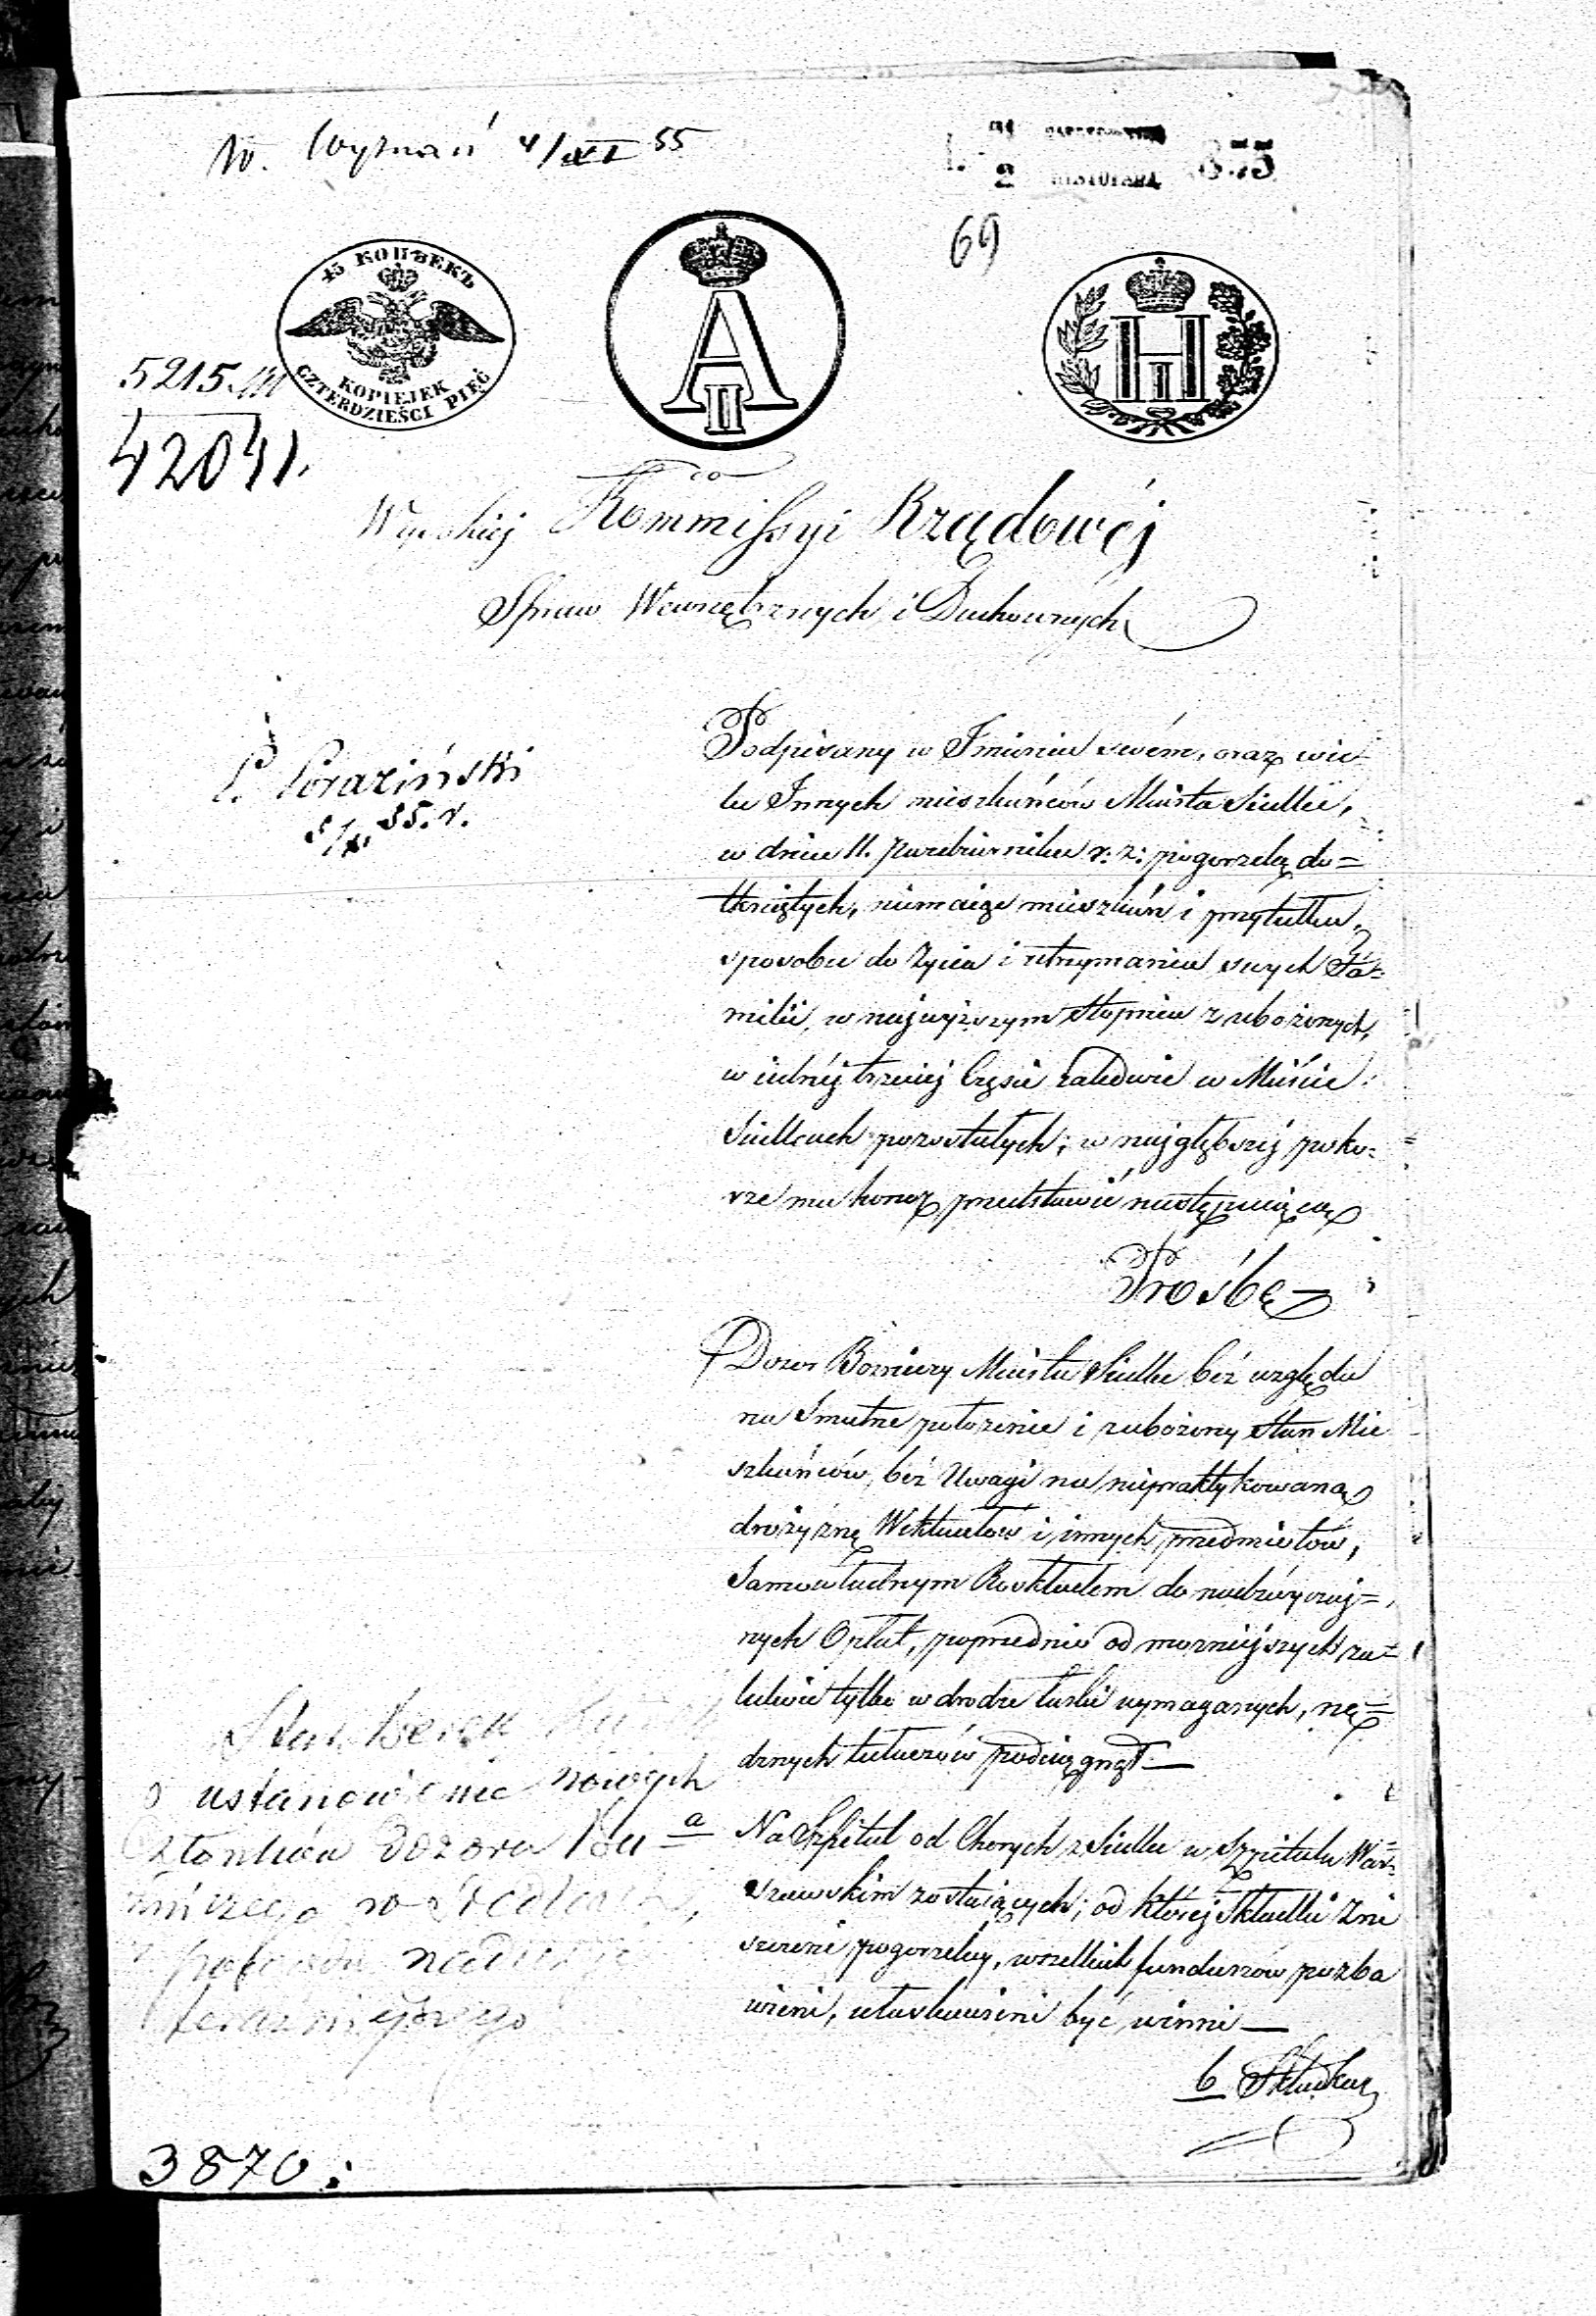 W. Wyznań 4/XI 55
2
LISTOPADA
69
45 КОПѢЕКЪ
KOPIEJEK
CZTERDZIEŚCI PIĘĆ
A II
H I
5215
42041.
do
Wysokiej Kommissyi Rządowéj
Spraw Wewnętrznych i Duchownych
P. Poraziński
5/XI 55. r.
Podpisany w Imieniu swém, oraz wie-
lu Innych mieszkańców Miasta Siedlec,
w dniu 11. Pazdziernika r: z: pogorzelą do=
tkniętych, niemaiąc mieszkań i przytułku,
sposobu do życia i utrzymania swych Fa=
milii, w najwyższym stopniu zubożonych,
w iednéj trzeciej Częsci zaledwie w Mieście
Siedlcach pozostałych; w najgłębszéj poko=
rze ma honor przedstawić następuiącą
Prośbę
Dozor Bózniczy Miasta Siedlec béz względu
na Smutne położenie i zubożony Stan Mie
szkańców, béz Uwagi na niepraktykowaną
drożyznę Wiktuałów i innych przedmiotów,
Samowładnym Rozkładem do nadzwyczaj=
nych Opłat, poprzednio od mozniejszych za=
ledwie tylko w drodze łaski wymaganych, nę=
dznych tułaczów podciągnął —
Na Szpital od Chorych z Siedlec w Szpitalu War=
szawskim zostaiących; od któréj Składki Zni
szczeni pogorzelcy, wszelkich funduszów pozba
wieni, ułaskawieni być winni —
b Składka
Star. Berek
o ustanowienie nowych
Członków Dozoru Bu
źniczego w Siedlcach,
z powodu nadużyć
teraznieyszego
3870.